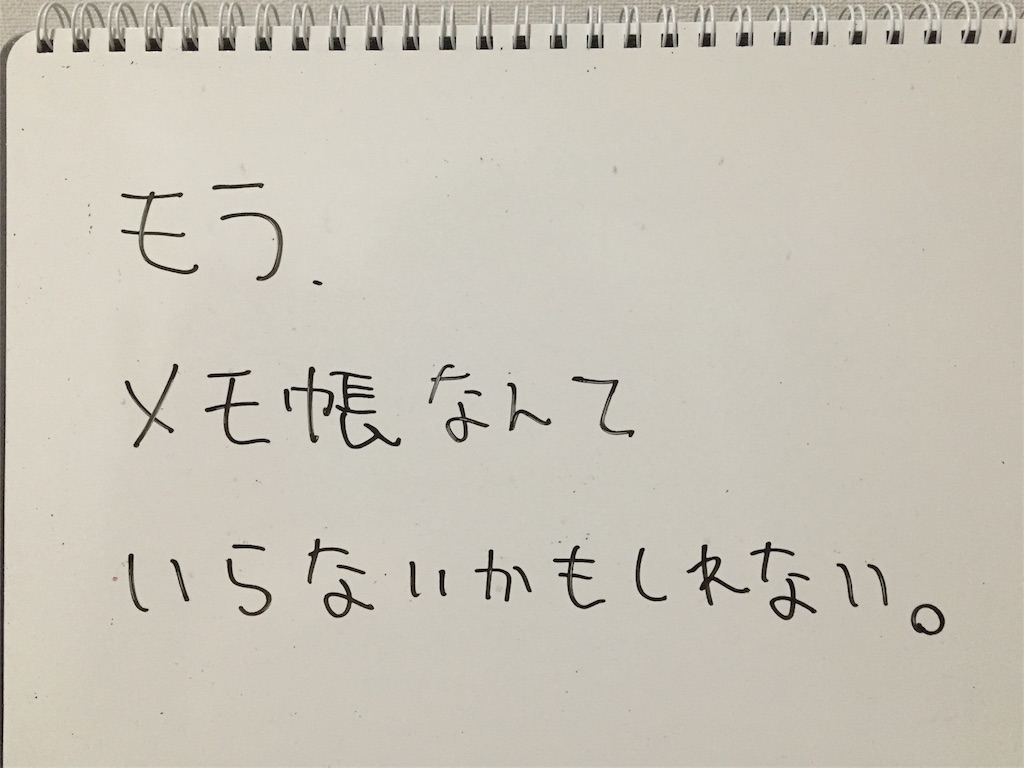 もう.
メモ帳なんて
いらないかもしれない。